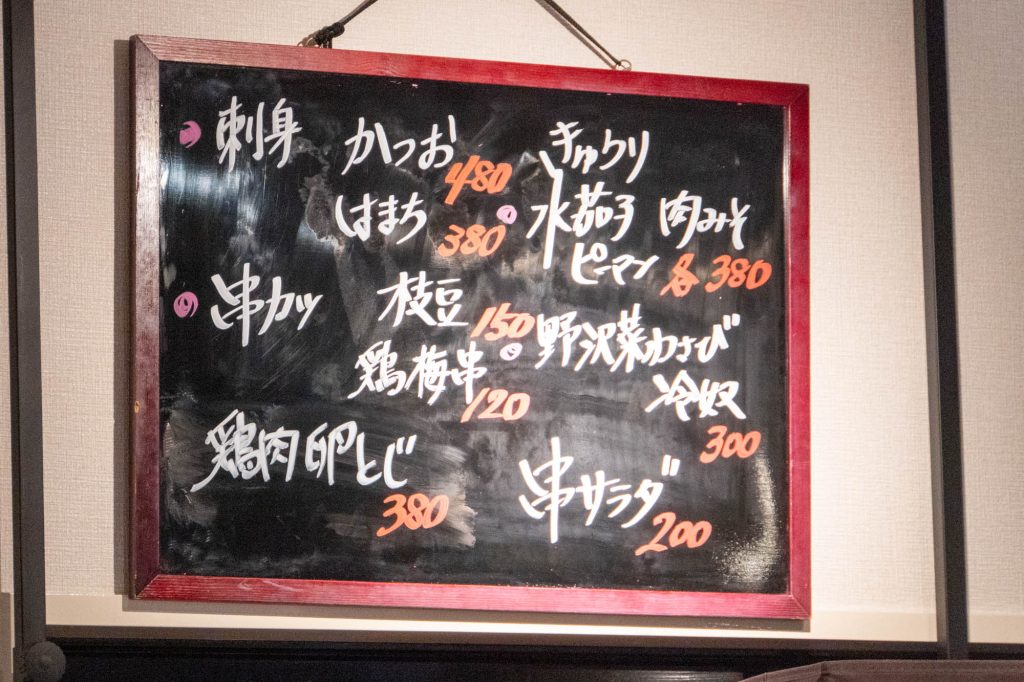 刺身 かつお 480
はまち 380
串カツ 枝豆 150
鶏梅串 120
鶏肉卵とじ 380
きゅうり
水茄子 肉みそ
ピーマン 各380
野沢菜わさび
冷奴 300
串サラダ 200